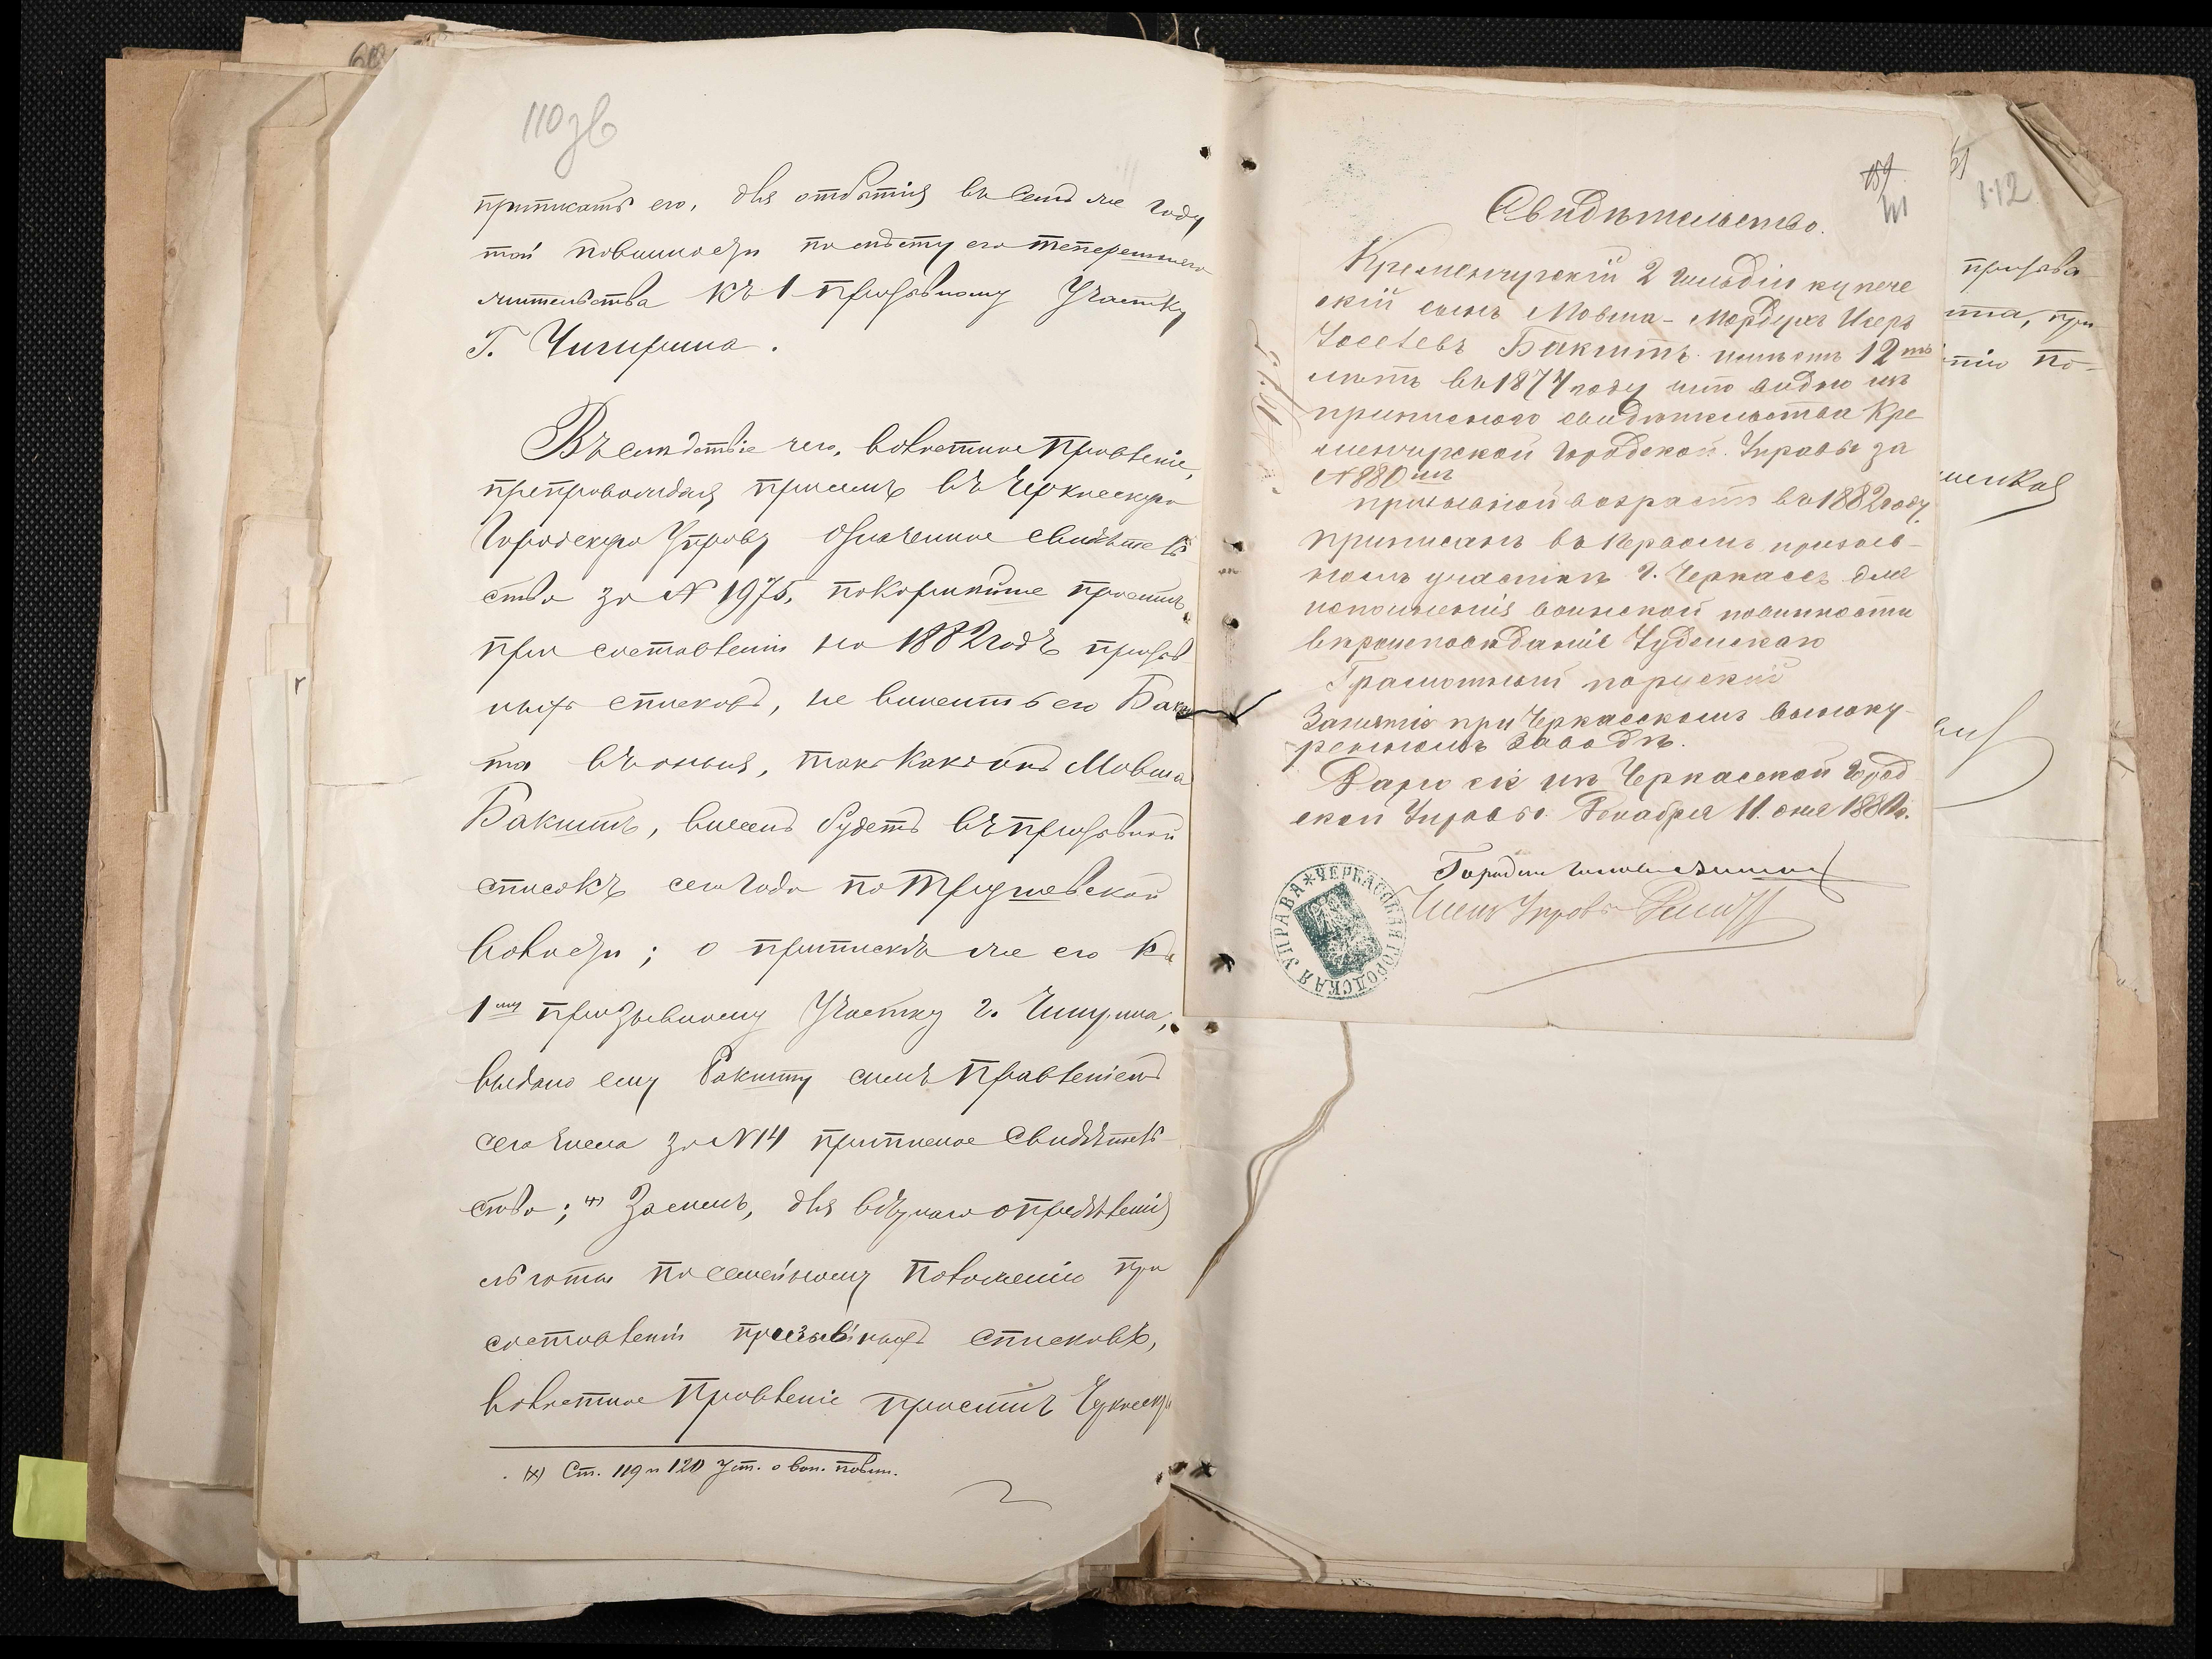 110 зв
приписать его, для отбытія въ семъ же году
той повинности по мѣсту его теперешняго
жительства къ 1 призывному Участку
Г. Чигирина.
Въ слѣдствіе чего, волостное Правленіе,
препровождая присемъ въ Черкасскую
Городскую Управу означенное свидѣтель
ство за № 1975, покорнѣйше проситъ,
при составленіи на 1882 годъ призыв
ныхъ списковъ, не вносить его Бакш
та въ оныя, такъ какъ онъ Мовша
Бакштъ, внесенъ будетъ въ призывной
списокъ сего года по Трушевской
волости; о припискѣ же его къ
1му призывному Участку г. Чигирина,
выдано ему Бакшту симъ Правленіемъ
сего числа за №14 приписное свидѣтель
ство; (х) Засимъ, для вѣрнаго опредѣленія
льготы по семейному положенію при
составленіи призывныхъ списковъ,
волостное Правленіе проситъ Черкасскую
(х) Ст. 119 и 120 Уст. о воин. повин.
159
111
Свидѣтельство.
Кременчугскій 2 гильдіи купече
скій сынъ Мовша-Мордухъ Ицеръ
Іосевъ Бакштъ имѣетъ 12ть
лѣтъ въ 1874 году что видно изъ
приписного свидѣтельства Кре
менчугской Городской Управы за
№880 мъ
призывной возрастъ въ 1882 году
приписанъ въ Первомъ призыв-
номъ участкѣ г. Черкассъ для
исполненія воинской повинности
вѣроисповѣданія Іудейскаго
Грамотный порусски
Занятія при Черкасскомъ виноку-
ренномъ заводѣ.
Дано сіе изъ Черкасской Город
ской Управы. Декабря 11. дня 188 г.
Членъ Управы
ЧЕРКАССКАЯ ГОРОДСКАЯ УПРАВА
№ 1975
112
призыва
та, при
нію по-